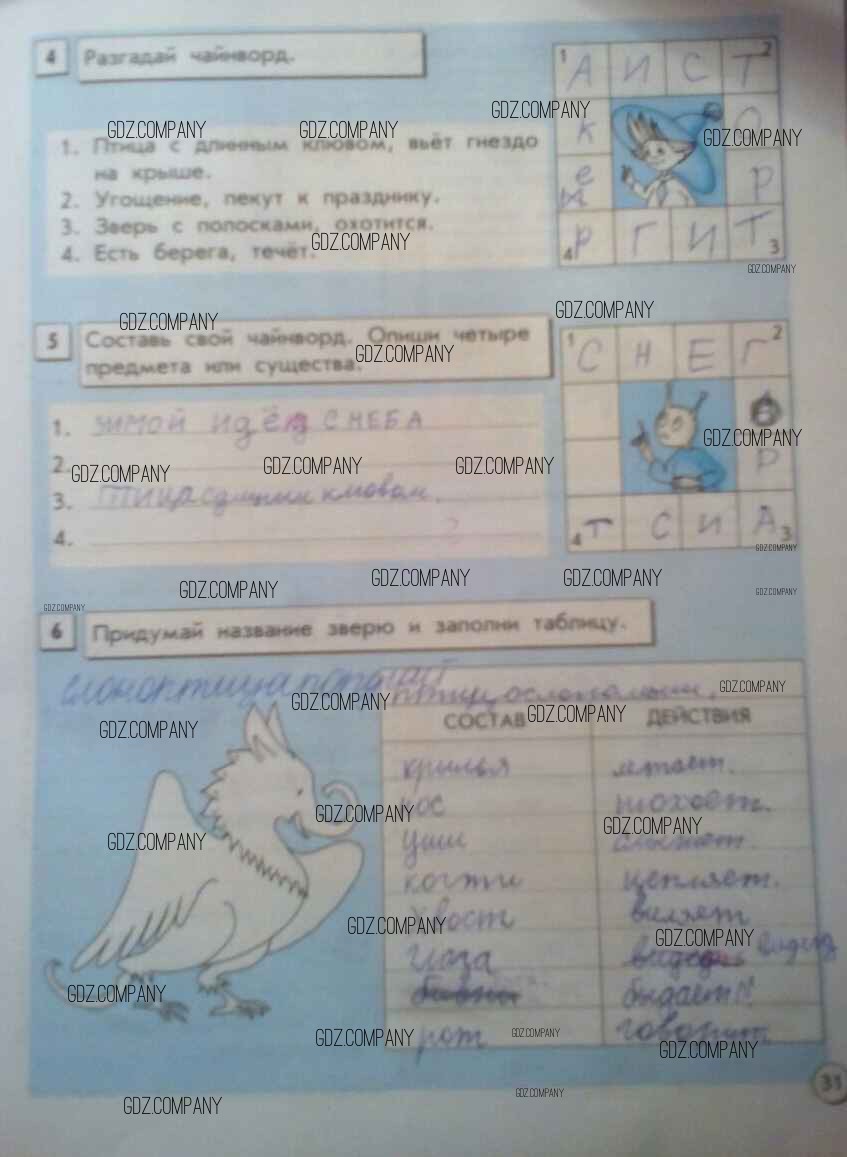 4 Разгадай чайнворд.
1. Птица с длинным клювом, вьёт гнездо
на крыше.
2. Угощение, пекут к празднику.
3. Зверь с полосками, охотится.
4. Есть берега, течёт.
1 А И С Т 2
К О
е Р
4 Р Г И Т 3
GDZ.COMPANY
5 Составь свой чайнворд. Опиши четыре
предмета или существа.
1. ЗИМОЙ ИДЁт С НЕБА
2.
3. Птица с длиным клювом.
4.
1 С Н Е Г 2
Р
4 т С И А 3
GDZ.COMPANY
6 Придумай название зверю и заполни таблицу.
слоноптицапопугай
СОСТАВ ДЕЙСТВИЯ
крылья летает.
нос нюхает.
уши слышет.
когти цепляет.
хвост виляет
глаза видят
бодает
рот говорит.
GDZ.COMPANY
31